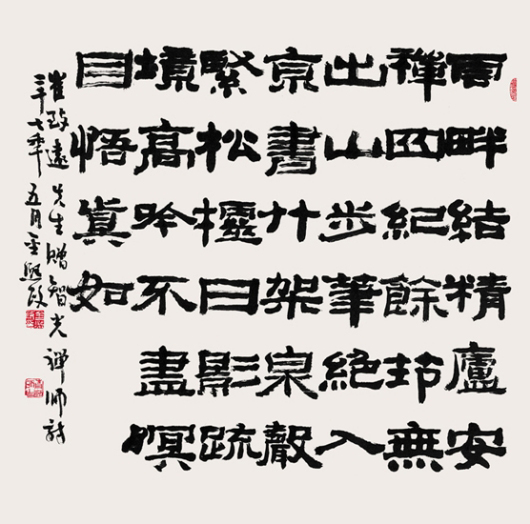 雲畔結精廬安
禪四紀餘筇無
出山步筆絶入
京書竹架泉聲
緊松欞日影疏
境高吟不盡暝
目悟眞如
崔致遠先生贈智光禪師詩
二千七年五月